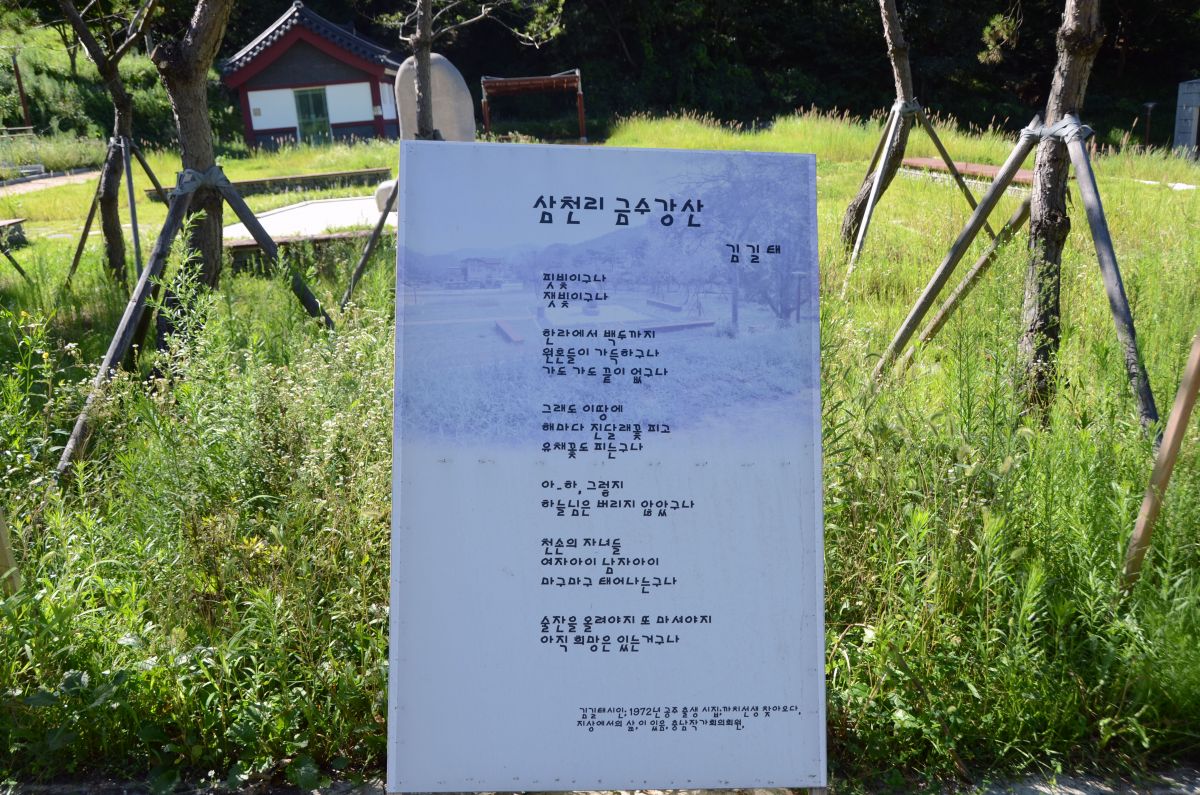 삼천리 금수강산
김길태
핏빛이구나
잿빛이구나
한라에서 백두까지
원혼들이 가득하구나
가도 가도 끝이 없구나
그래도 이땅에
해마다 진달래꽃 피고
유채꽃도 피는구나
아-하, 그렇지
하늘님은 버리지 않았구나
천손의 자녀들
여자아이 남자아이
마구마구 태어나는구나
술잔을 올려야지 또 마셔야지
아직 희망은 있는거구나
김길태시인; 1972년 공주 출생 시집;까치선생 찾아오다,
지상에서의 삶, 이 있음, 충남작가회의회원,